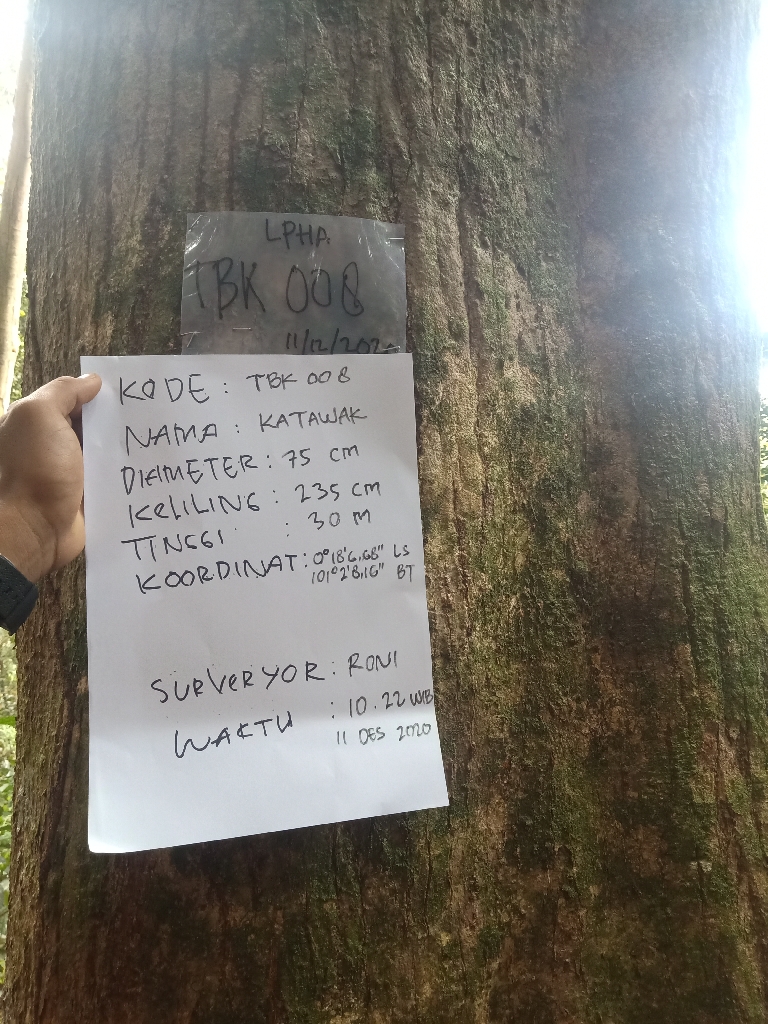 LPHA
TBK 008
11/12/2020
KODE : TBK 008
NAMA : KATAWAK
DIAMETER : 75 cm
KELILING : 235 cm
TINGGI : 30 M
KOORDINAT : 0°18'6,68" LS
101°2'8,16" BT
SURVERYOR : RONI
WAKTU : 10.22 WIB
11 DES 2020